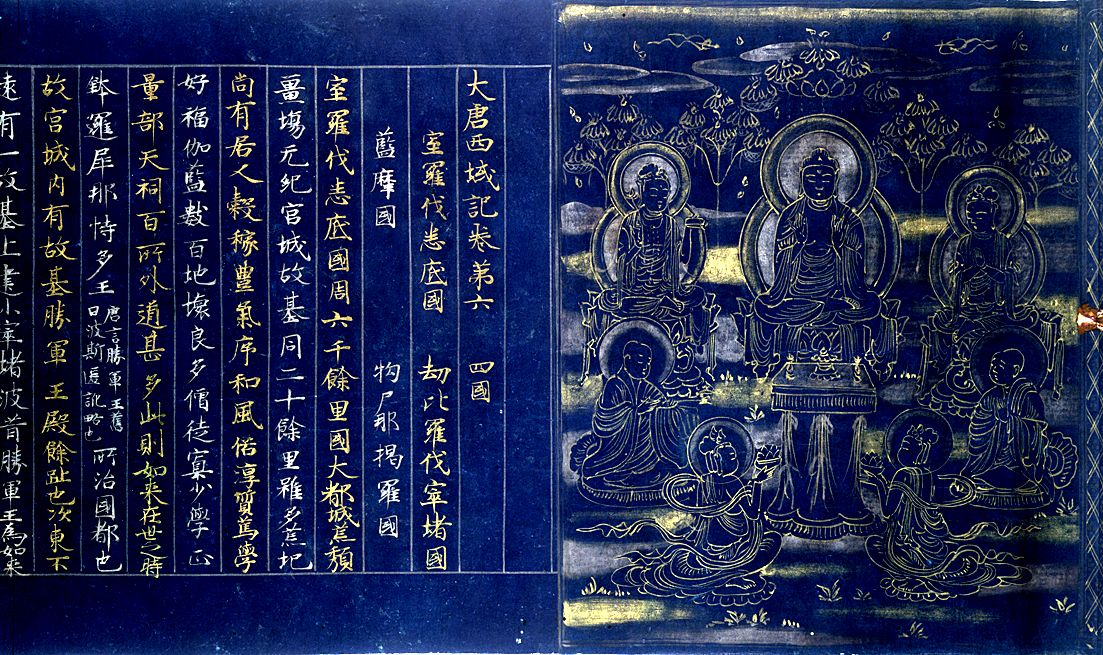 大唐西域記卷第六 四國
室羅伐悉底國 劫比羅伐窣堵國
藍摩國 拘尸那揭羅國
室羅伐悉底國周六千餘里國大都城荒頹
畺埸无紀宮城故基同二十餘里雖多荒圮
尚有居人穀稼豊氣序和風俗淳質篤學
好福伽藍數百地壞良多僧徒寡少學正
量部天祠百所外道甚多此則如来在世之時
鉢邏犀那恃多王唐言勝軍王舊曰波斯匿訛略也所治國都也
故宮城內有故基勝軍王殿餘趾也次東不
遠有一故基上建小窣堵波昔勝軍王爲如来